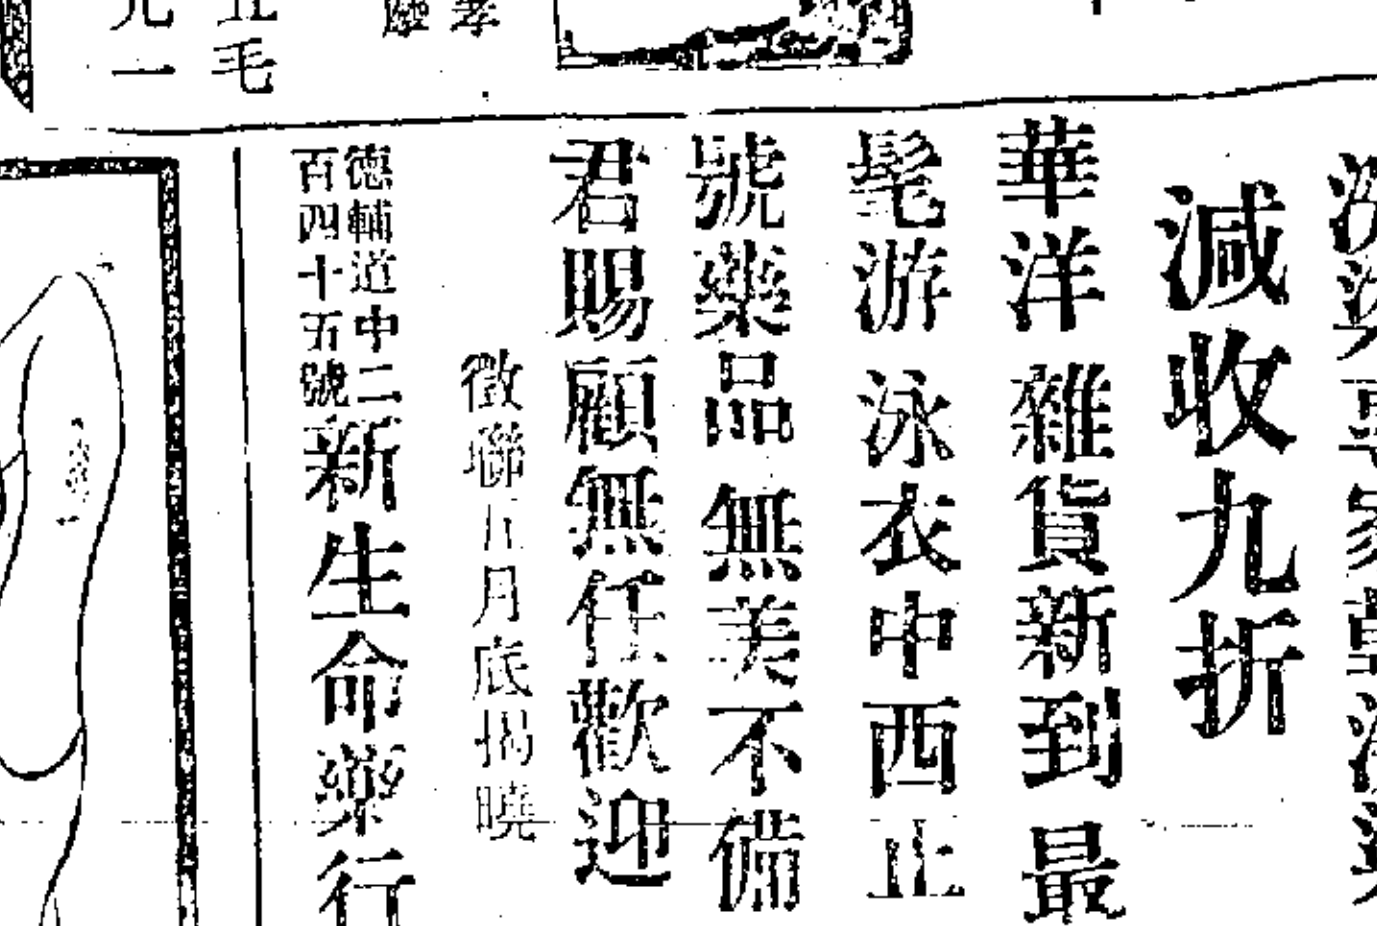 減收九折
華洋雜貨新到最
髦游泳衣中西正
號藥品無美不備
君賜顧無任歡迎
徵聯九月底揭曉
德輔道中二
百四十五號
新生命藥行
五毛
九一